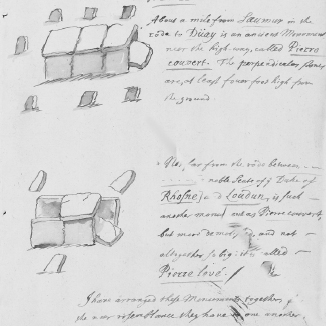 About a mile from Saumur in the
rode to Duay is an ancient Monument
near the high-way, called Pierre
couvert. The perpendicular stones
are, at least fower foot high from
the ground.
Not far from the rode between
noble Seate of ye Duke of
and Loudun, is such
another monument as Pierre couvert,
but more demolished, and not
altogether so big: it is called
Pierre levé.
I have arranged these Monuments together, for
the near resemblance they have to one another